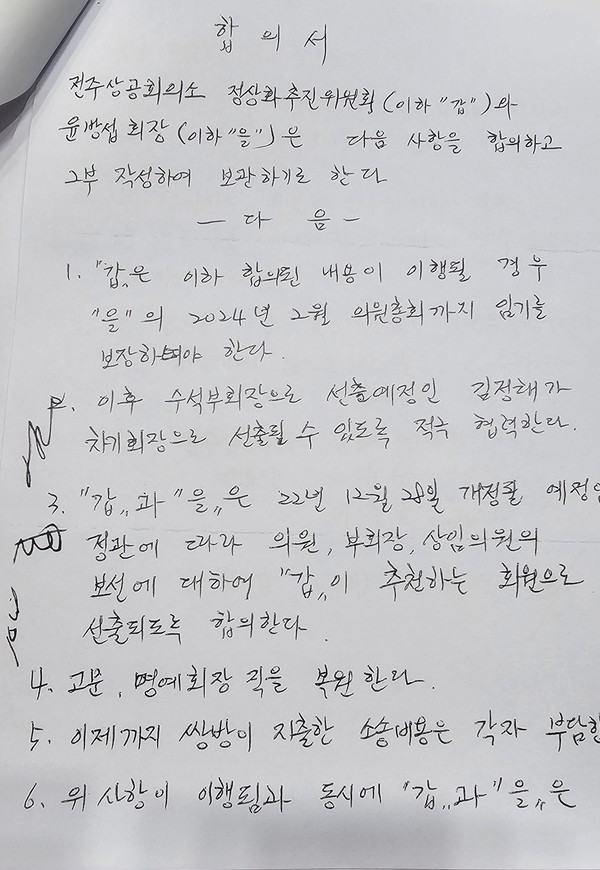 합 의 서
전주상공회의소 정상화추진위원회(이하 "갑")와
윤방섭 회장(이하 "을")은 다음 사항을 합의하고
2부 작성하여 보관하기로 한다
— 다 음 —
1. "갑"은 이하 합의된 내용이 이행될 경우
"을"의 2024년 2월 의원총회까지 임기를
보장하여야 한다.
2. 이후 수석부회장으로 선출예정인 김정태가
차기회장으로 선출될 수 있도록 적극 협력한다.
3. "갑"과 "을"은 22년 12월 28일 개정될 예정인
정관에 따라 의원, 부회장, 상임의원의
보선에 대하여 "갑"이 추천하는 회원으로
선출되도록 합의한다.
4. 고문, 명예회장 직을 복원한다.
5. 이제까지 쌍방이 지출한 소송비용은 각자 부담한
6. 위 사항이 이행됨과 동시에 "갑"과 "을"은